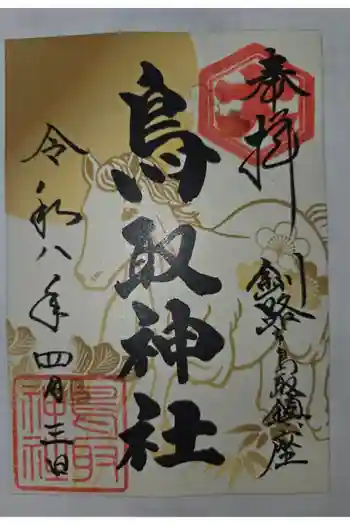 奉拝
釧路鳥取鎮座
鳥取神社
令和八年四月三日
鳥取神社